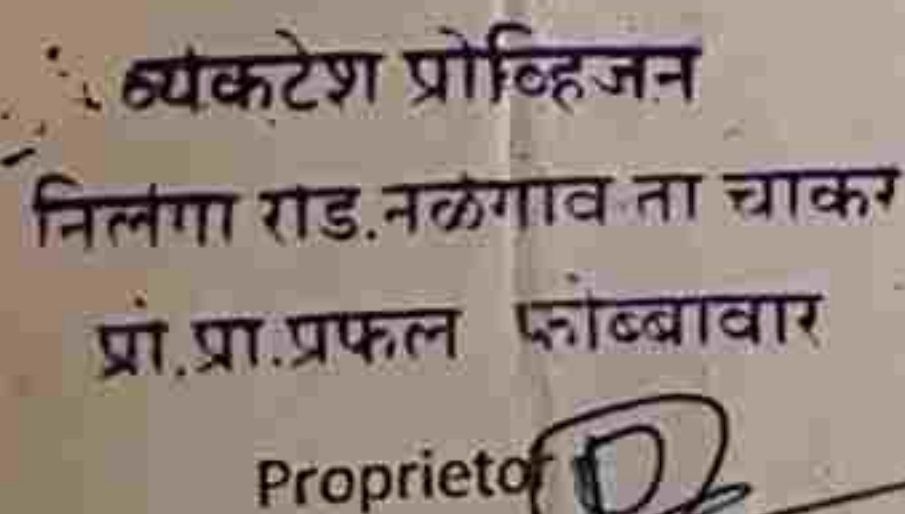 व्यंकटेश प्रोव्हिजन
निलंगा रोड.नळेगाव ता चाकर
प्रो.प्रा.प्रफल कोंब्बावार
Proprietor